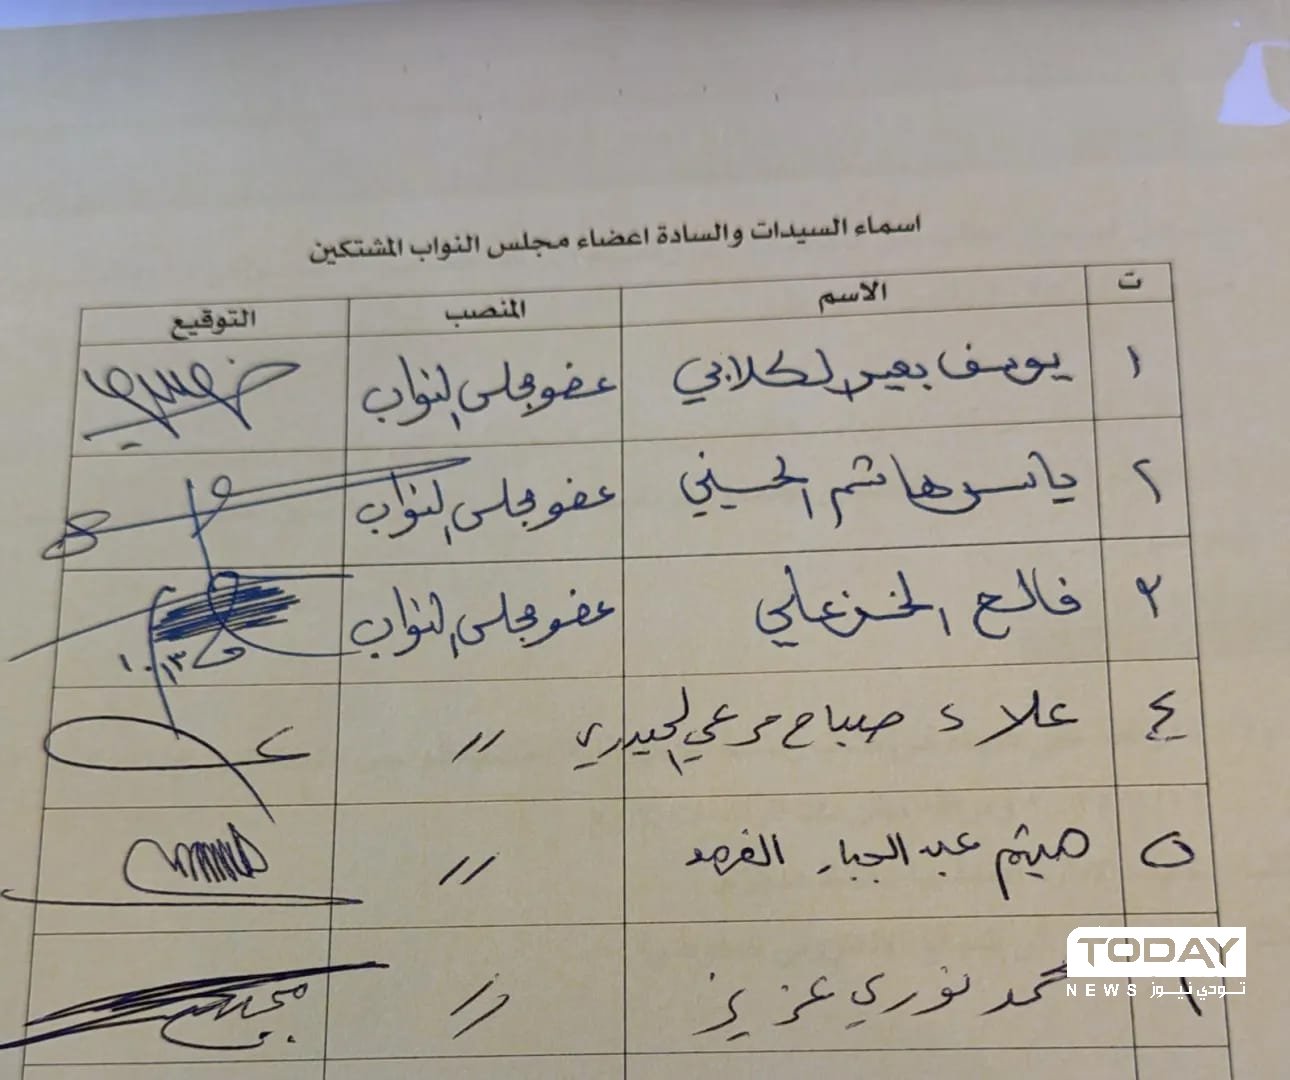 اسماء السيدات والسادة اعضاء مجلس النواب المشتكين
ت الاسم المنصب التوقيع
١ يوسف بعير الكلابي عضو مجلس النواب
٢ ياسر هاشم الحسيني عضو مجلس النواب
٣ فالح الخزعلي عضو مجلس النواب
٤ علاء صباح مرعي الحيدري //
٥ هيثم عبد الجبار الفهد //
محمد نوري عزيز //
TODAY
NEWS تودي نيوز